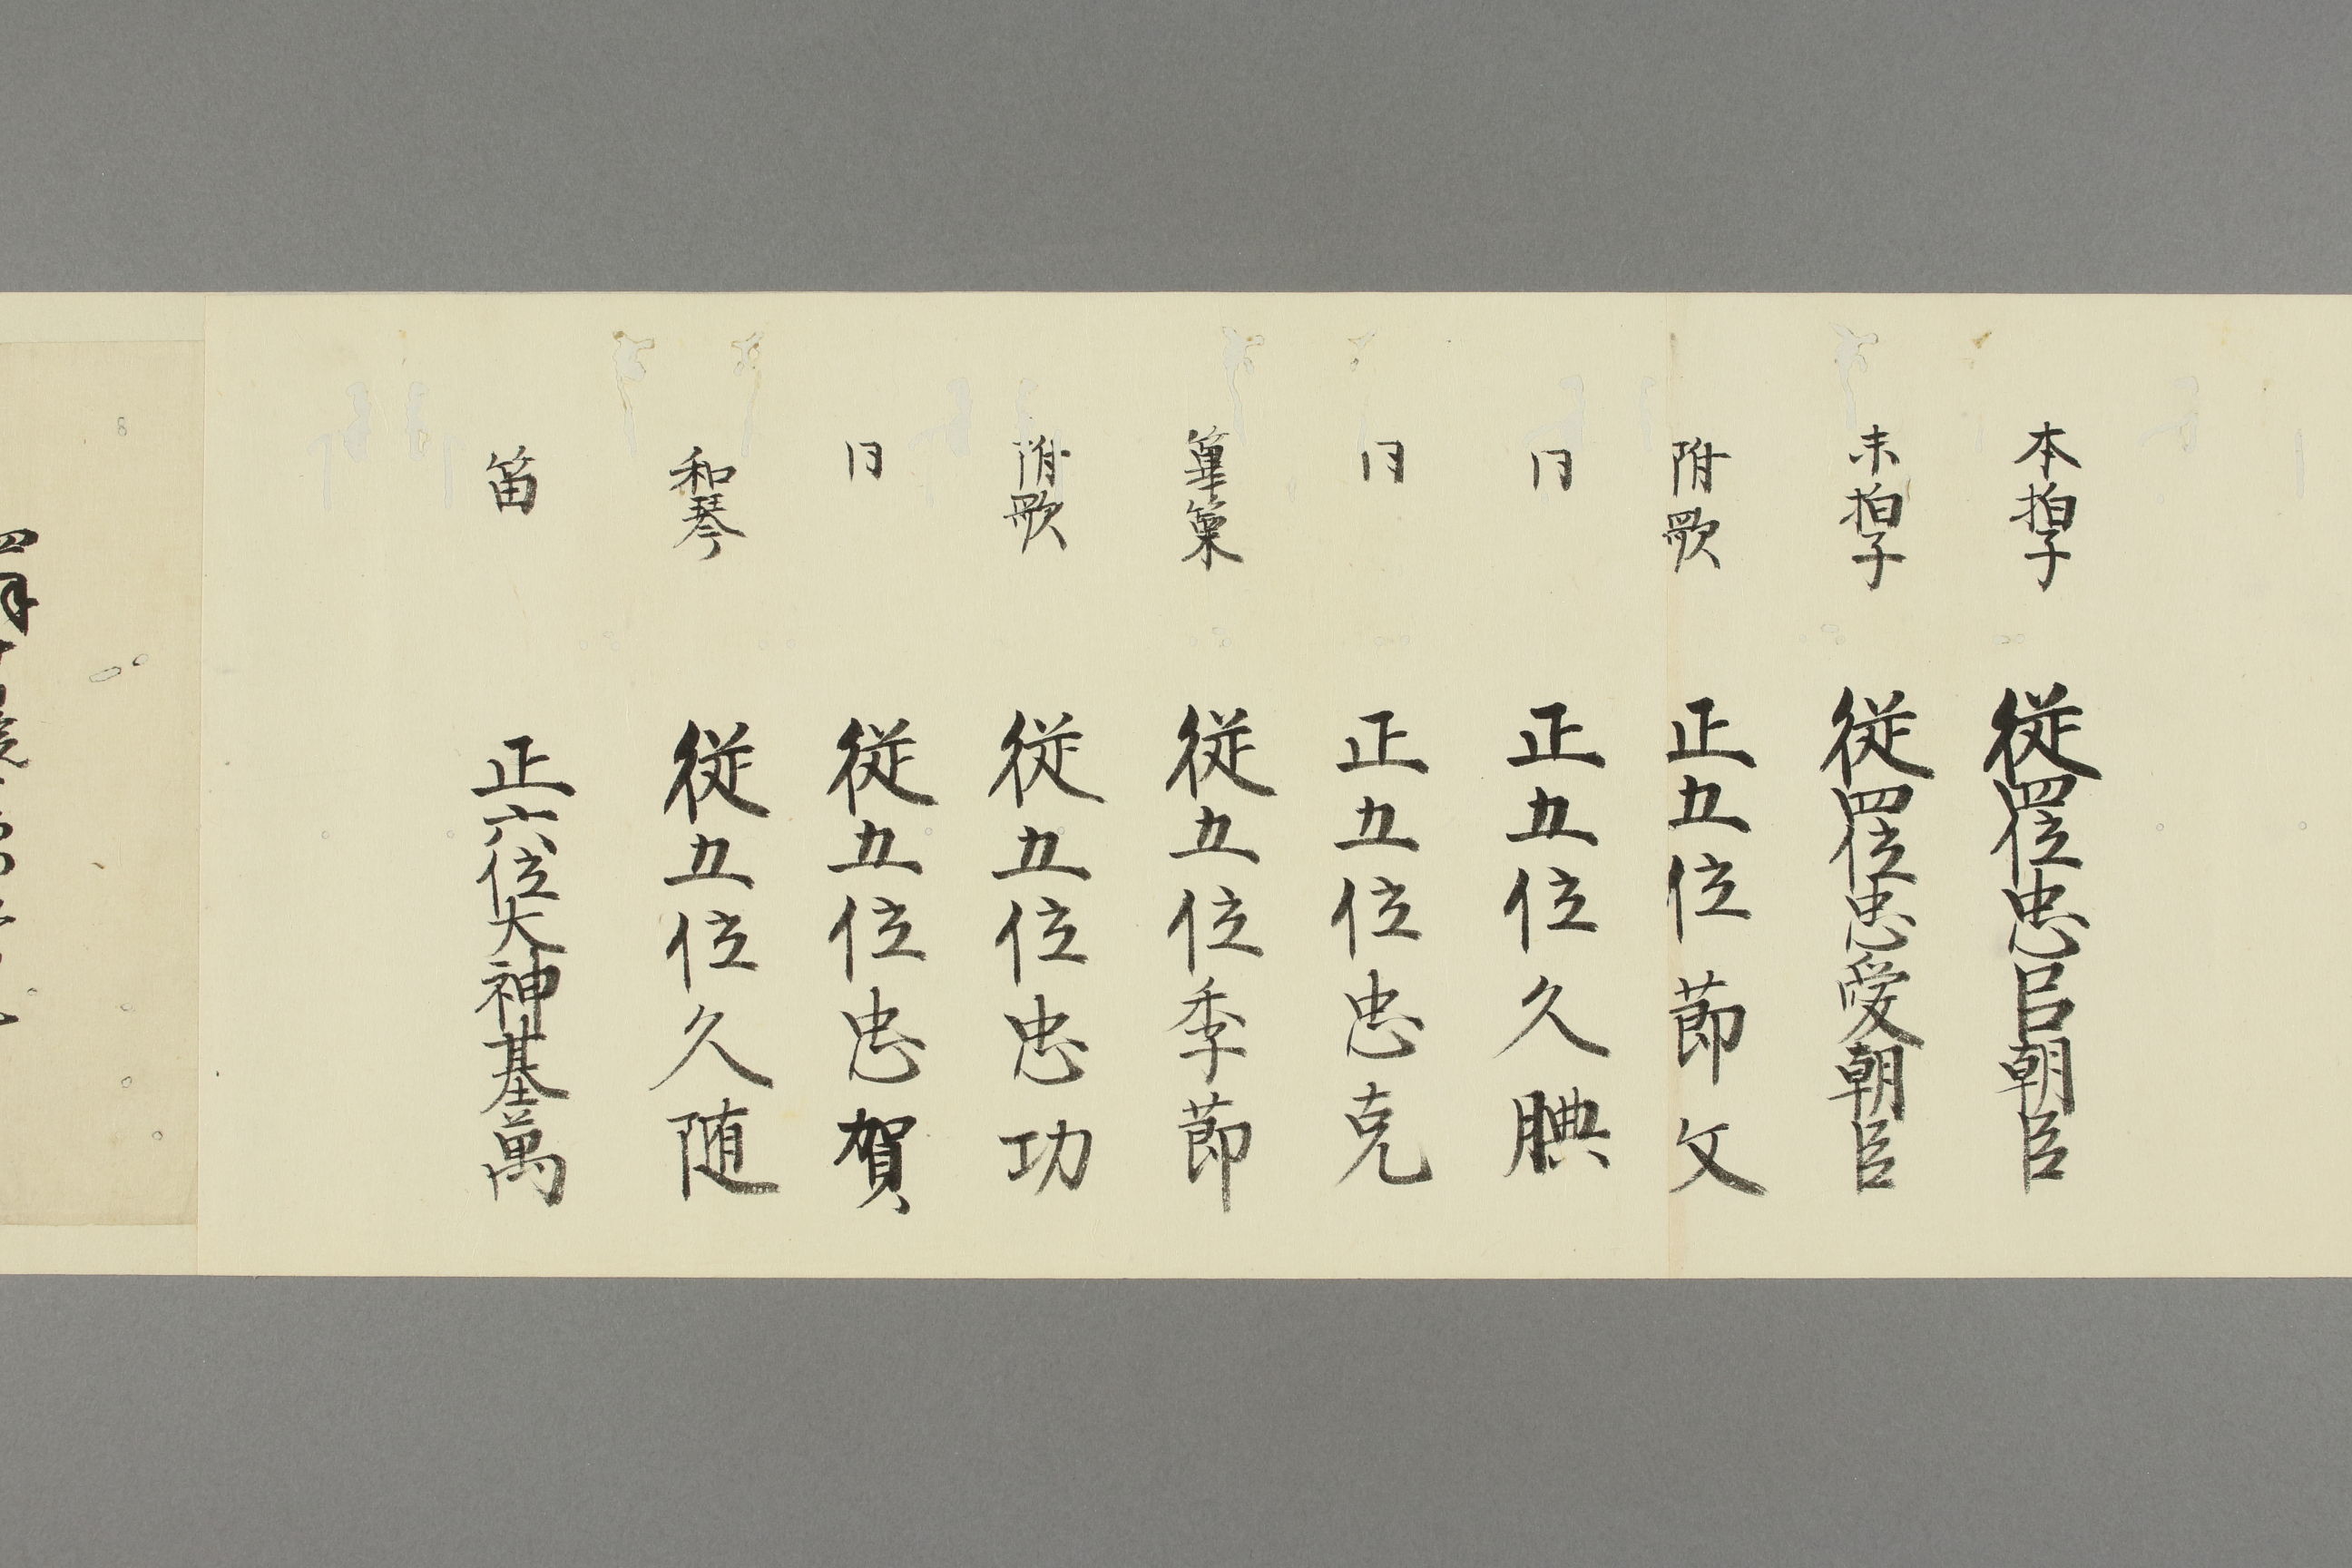 本拍子 従四位忠同朝臣
末拍子 従四位忠愛朝臣
附歌 正五位節文
同 正五位久腆
同 正五位忠克
篳篥 従五位季節
附歌 従五位忠功
同 従五位忠賀
和琴 従五位久随
笛 正六位大神基萬